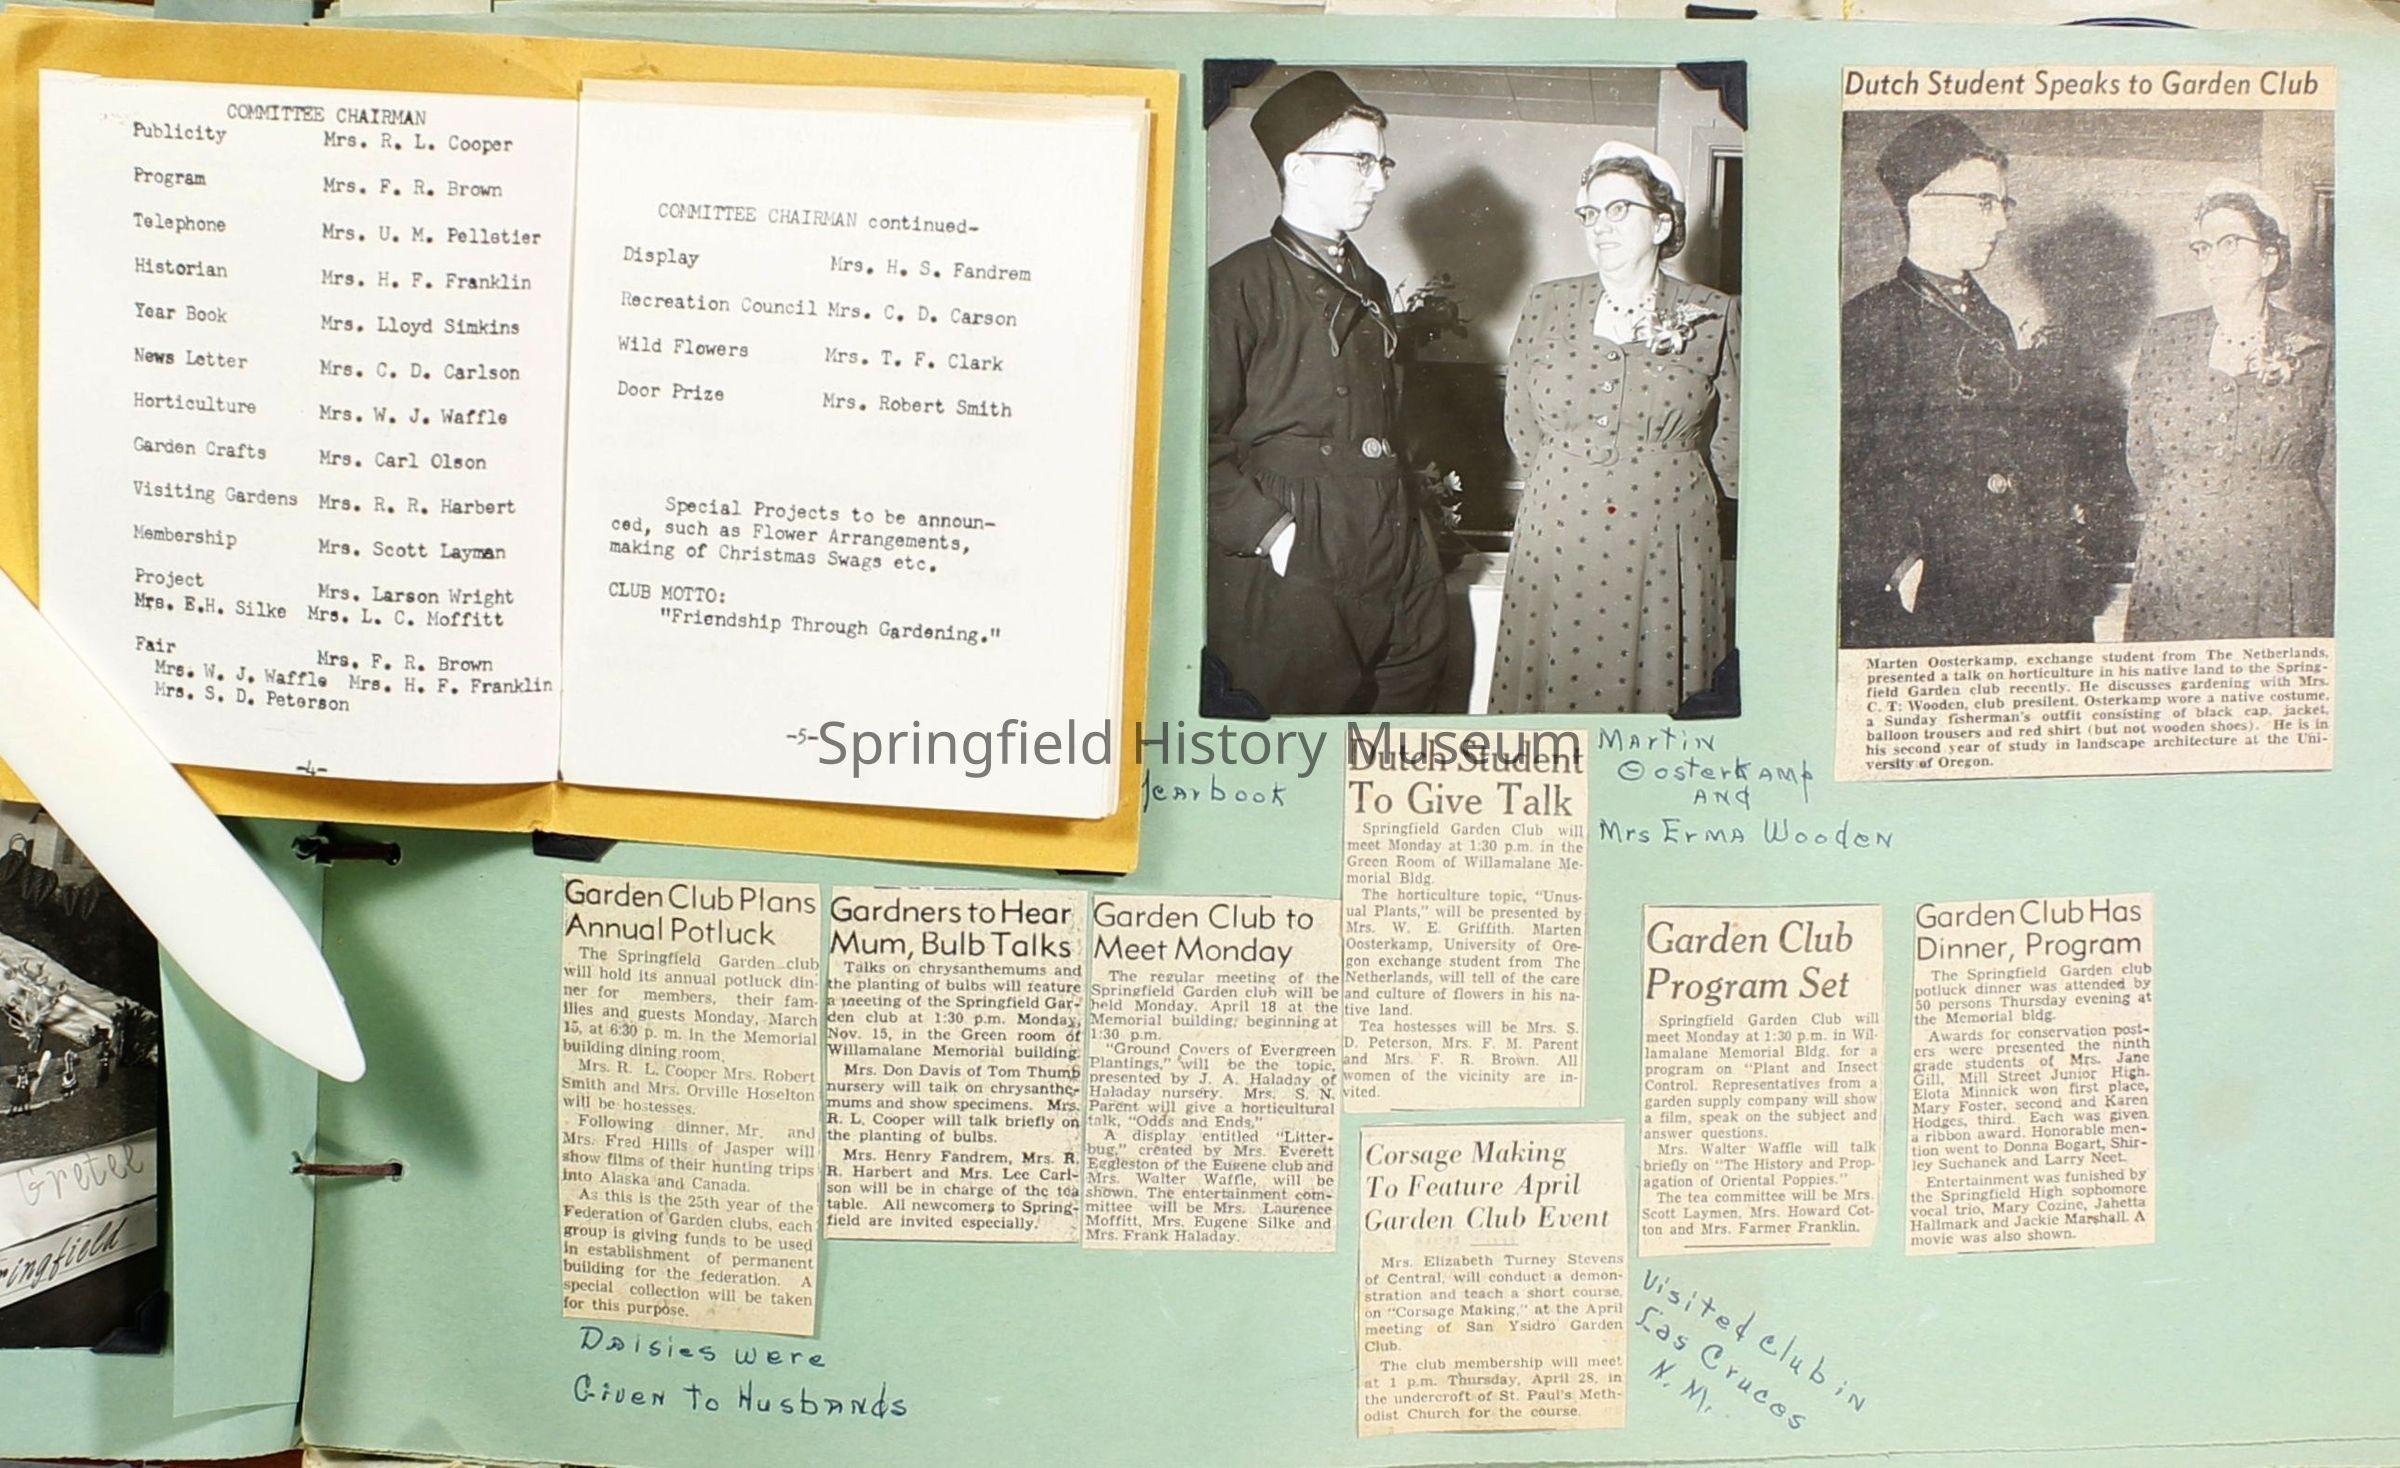 COMMITTEE CHAIRMAN
Publicity Mrs. R. L. Cooper
Program Mrs. F. R. Brown
Telephone Mrs. U. M. Pelletier
Historian Mrs. H. F. Franklin
Year Book Mrs. Lloyd Simkins
News Letter Mrs. C. D. Carlson
Horticulture Mrs. W. J. Waffle
Garden Crafts Mrs. Carl Olson
Visiting Gardens Mrs. R. R. Harbert
Membership Mrs. Scott Layman
Project Mrs. Larson Wright
Mrs. E.H. Silke Mrs. L. C. Moffitt
Fair Mrs. F. R. Brown
Mrs. W. J. Waffle Mrs. H. F. Franklin
Mrs. S. D. Peterson
-4-
COMMITTEE CHAIRMAN continued-
Display Mrs. H. S. Fandrem
Recreation Council Mrs. C. D. Carson
Wild Flowers Mrs. T. F. Clark
Door Prize Mrs. Robert Smith
Special Projects to be announ-
ced, such as Flower Arrangements,
making of Christmas Swags etc.
CLUB MOTTO:
"Friendship Through Gardening."
-5-
Springfield History Museum
Yearbook
Dutch Student Speaks to Garden Club
Marten Oosterkamp, exchange student from The Netherlands,
presented a talk on horticulture in his native land to the Spring-
field Garden club recently. He discusses gardening with Mrs.
C. T. Wooden, club presilent. Osterkamp wore a native costume,
a Sunday fisherman's outfit consisting of black cap, jacket,
balloon trousers and red shirt (but not wooden shoes). He is in
his second year of study in landscape architecture at the Uni-
versity of Oregon.
Martin
Oosterkamp
and
Mrs Erma Wooden
Dutch Student
To Give Talk
Springfield Garden Club will
meet Monday at 1:30 p.m. in the
Green Room of Willamalane Me-
morial Bldg.
The horticulture topic, "Unus-
ual Plants," will be presented by
Mrs. W. E. Griffith. Marten
Oosterkamp, University of Ore-
gon exchange student from The
Netherlands, will tell of the care
and culture of flowers in his na-
tive land.
Tea hostesses will be Mrs. S.
D. Peterson, Mrs. F. M. Parent
and Mrs. F. R. Brown. All
women of the vicinity are in-
vited.
Garden Club Plans
Annual Potluck
The Springfield Garden club
will hold its annual potluck din-
ner for members, their fam-
ilies and guests Monday, March
15, at 6:30 p. m. in the Memorial
building dining room.
Mrs. R. L. Cooper Mrs. Robert
Smith and Mrs. Orville Hoselton
will be hostesses.
Following dinner, Mr. and
Mrs. Fred Hills of Jasper will
show films of their hunting trips
into Alaska and Canada.
As this is the 25th year of the
Federation of Garden clubs, each
group is giving funds to be used
in establishment of permanent
building for the federation. A
special collection will be taken
for this purpose.
Daisies were
Given to Husbands
Gardners to Hear
Mum, Bulb Talks
Talks on chrysanthemums and
the planting of bulbs will feature
a meeting of the Springfield Gar-
den club at 1:30 p.m. Monday,
Nov. 15, in the Green room of
Willamalane Memorial building.
Mrs. Don Davis of Tom Thumb
nursery will talk on chrysanthe-
mums and show specimens. Mrs.
R. L. Cooper will talk briefly on
the planting of bulbs.
Mrs. Henry Fandrem, Mrs. R.
R. Harbert and Mrs. Lee Carl-
son will be in charge of the tea
table. All newcomers to Spring-
field are invited especially.
Garden Club to
Meet Monday
The regular meeting of the
Springfield Garden club will be
held Monday, April 18 at the
Memorial building, beginning at
1:30 p.m.
"Ground Covers of Evergreen
Plantings," will be the topic,
presented by J. A. Haladay of
Haladay nursery. Mrs. S. N.
Parent will give a horticultural
talk, "Odds and Ends,"
A display entitled "Litter-
bug," created by Mrs. Everett
Eggleston of the Eugene club and
Mrs. Walter Waffle, will be
shown. The entertainment com-
mittee will be Mrs. Laurence
Moffitt, Mrs. Eugene Silke and
Mrs. Frank Haladay.
Corsage Making
To Feature April
Garden Club Event
Mrs. Elizabeth Turney Stevens
of Central, will conduct a demon-
stration and teach a short course,
on "Corsage Making," at the April
meeting of San Ysidro Garden
Club.
The club membership will meet
at 1 p.m. Thursday, April 28, in
the undercroft of St. Paul's Meth-
odist Church for the course.
Visited club in
Las Cruces
N. M.
Garden Club
Program Set
Springfield Garden Club will
meet Monday at 1:30 p.m. in Wil-
lamalane Memorial Bldg. for a
program on "Plant and Insect
Control. Representatives from a
garden supply company will show
a film, speak on the subject and
answer questions.
Mrs. Walter Waffle will talk
briefly on "The History and Prop-
agation of Oriental Poppies."
The tea committee will be Mrs.
Scott Laymen, Mrs. Howard Cot-
ton and Mrs. Farmer Franklin.
Garden Club Has
Dinner, Program
The Springfield Garden club
potluck dinner was attended by
50 persons Thursday evening at
the Memorial bldg.
Awards for conservation post-
ers were presented the ninth
grade students of Mrs. Jane
Gill, Mill Street Junior High.
Elota Minnick won first place,
Mary Foster, second and Karen
Hodges, third. Each was given
a ribbon award. Honorable men-
tion went to Donna Bogart, Shir-
ley Suchanek and Larry Neet.
Entertainment was funished by
the Springfield High sophomore
vocal trio, Mary Cozine, Jahetta
Hallmark and Jackie Marshall. A
movie was also shown.
Gretel
ringfield